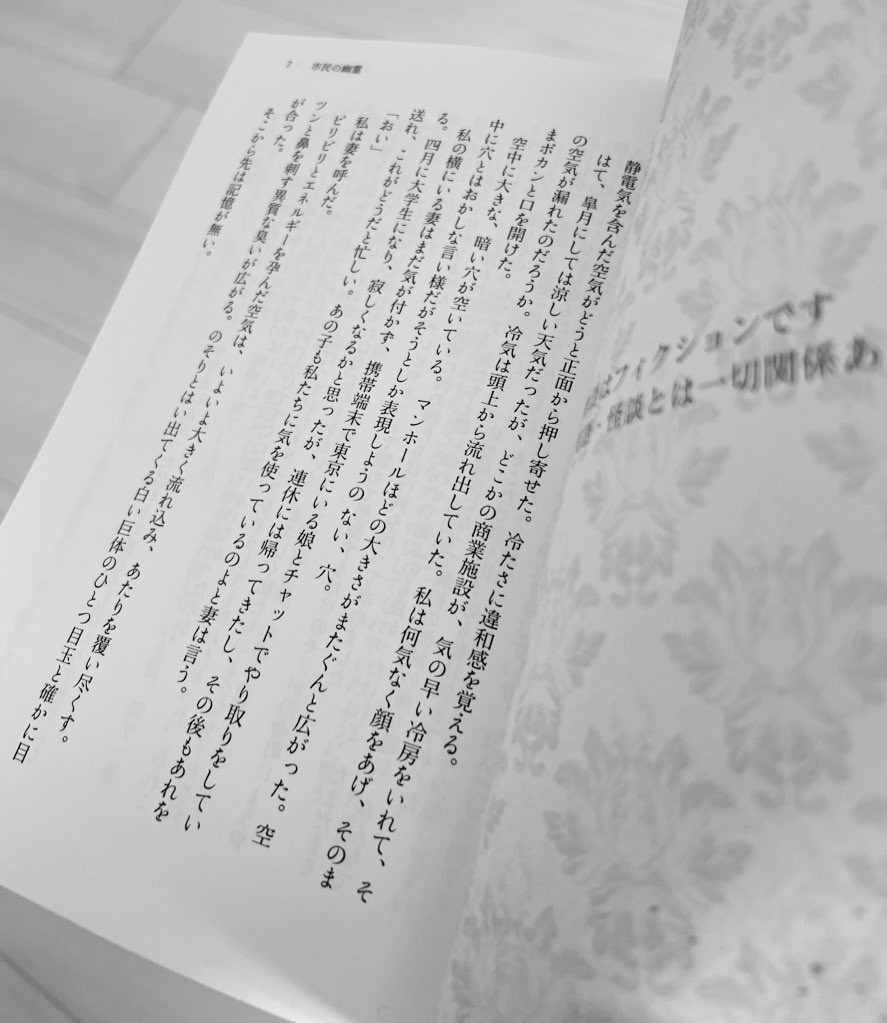 はフィクションです
・怪談とは一切関係あ
7 市民の幽霊
静電気を含んだ空気がどうと正面から押し寄せた。冷たさに違和感を覚える。
はて、皐月にしては涼しい天気だったが、どこかの商業施設が、気の早い冷房をいれて、そ
の空気が漏れたのだろうか。冷気は頭上から流れ出していた。私は何気なく顔をあげ、そのま
まポカンと口を開けた。
空中に大きな、暗い穴が空いている。マンホールほどの大きさがまたぐんと広がった。空
中に穴とはおかしな言い様だがそうとしか表現しようのない、穴。
私の横にいる妻はまだ気が付かず、携帯端末で東京にいる娘とチャットでやり取りをしてい
る。四月に大学生になり、寂しくなるかと思ったが、連休には帰ってきたし、その後もあれを
送れ、これがどうだと忙しい。あの子も私たちに気を使っているのよと妻は言う。
「おい」
私は妻を呼んだ。
ピリピリとエネルギーを孕んだ空気は、いよいよ大きく流れ込み、あたりを覆い尽くす。
ツンと鼻を刺す異質な臭いが広がる。のそりとはい出てくる白い巨体のひとつ目玉と確かに目
が合った。
そこから先は記憶が無い。